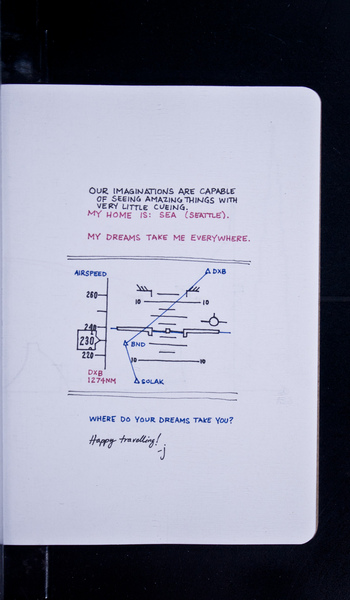 OUR IMAGINATIONS ARE CAPABLE
OF SEEING AMAZING THINGS WITH
VERY LITTLE CUEING.
MY HOME IS: SEA (SEATTLE).
MY DREAMS TAKE ME EVERYWHERE.
AIRSPEED
DXB
260
10 10
240
230
BND
220
10 10
DXB
1274NM
SOLAK
WHERE DO YOUR DREAMS TAKE YOU?
Happy travelling!
-j